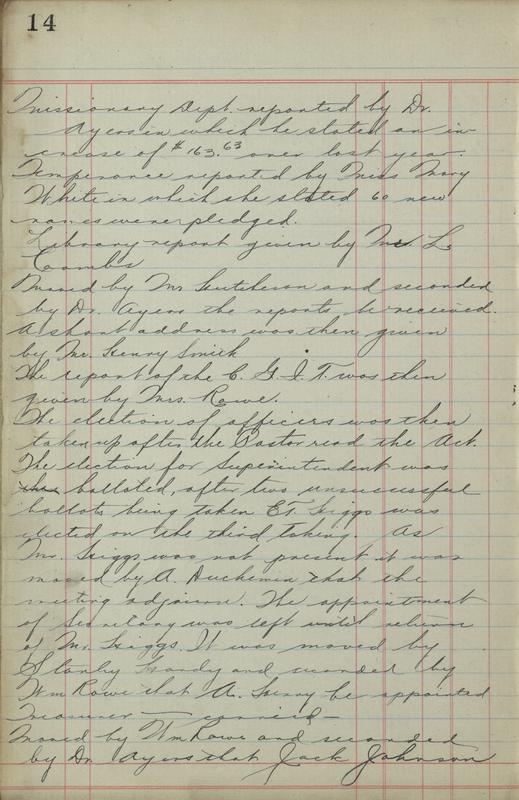 14
Missionary Dept. reported by Dr.
Ayers in which he stated an in-
crease of $163.63 over last year.
Temperance reported by Miss Mary
White in which she stated 60 new
names were pledged.
Library report given by L.
Combs
Moved by Mr Hutcheson and seconded
by Dr. Ayers the reports be received.
A short address was then given
by Mr. Henry Smith
The report of the C. G. I. T. was then
given by Mrs. Rowe.
The election of officers was then
taken up after the Pastor read the Act.
The election for Superintendent was
balloted, after two unsuccessful
ballots being taken was
elected on the third taking. As
Mr. was not present it was
moved by A. Duchemin that the
meeting adjourn. The appointment
of Secretary was left until return
of Mr. It was moved by
Stanley and seconder by
Wm Rowe that A. Henry be appointed
Treasurer — carried —
Moved by Wm Rowe and seconded
by Dr. Ayers that Jack Johnson